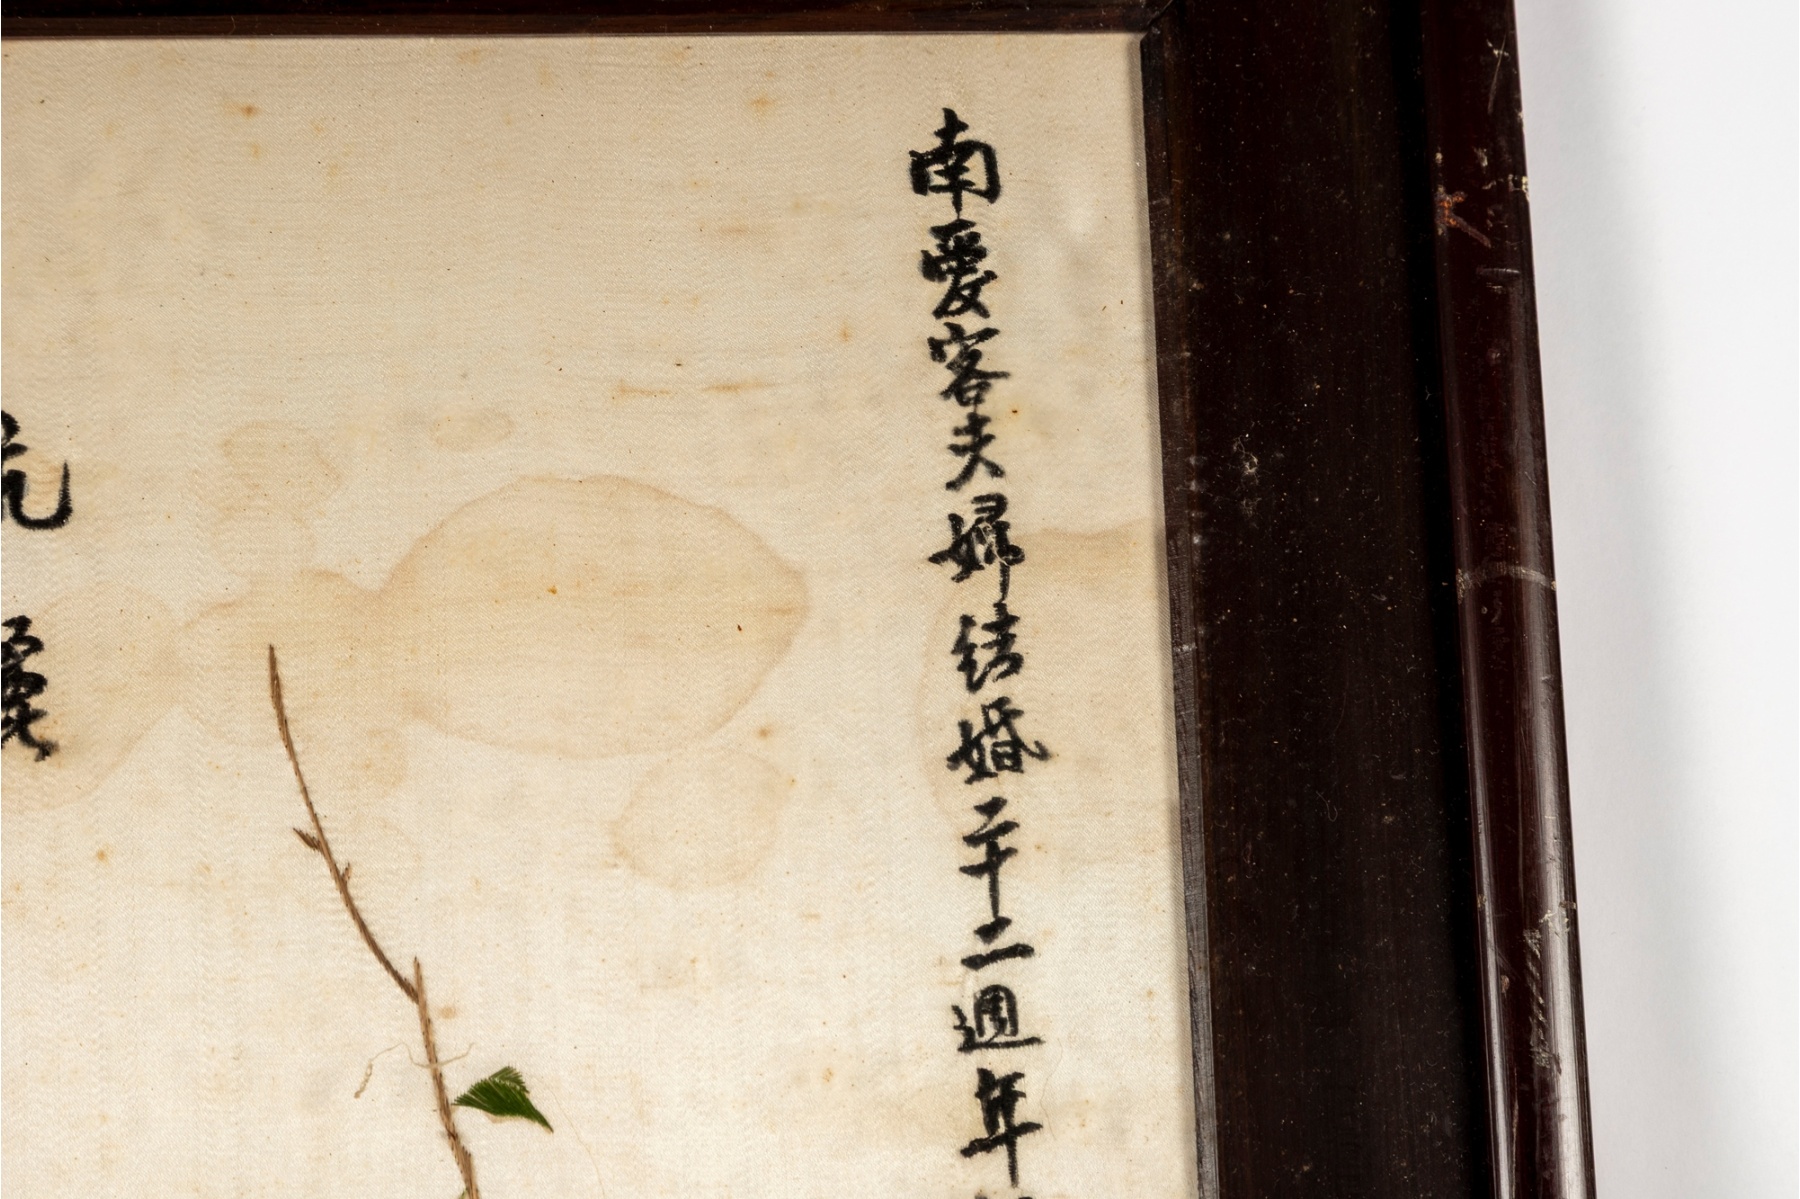 南愛客夫婦结婚二十二週年